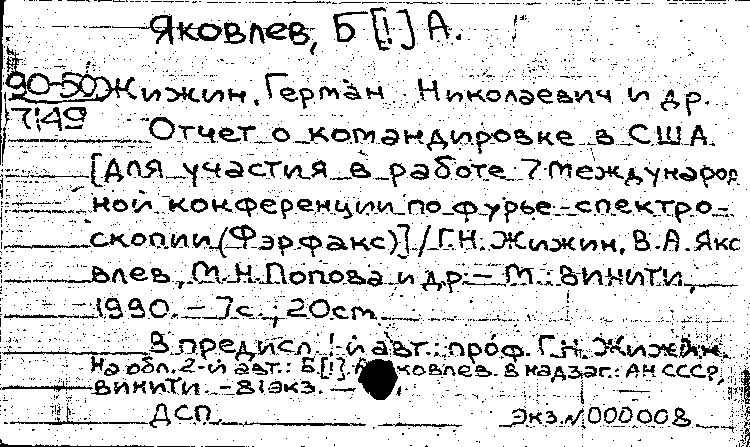 Яковлев, Б [!] А.
90-50
7149
Жижин, Герман Николаевич и др.
Отчет о командировке в США.
[Для участия в работе 7 международ
ной конференции по фурье-спектро-
скопии (Фэрфакс)] / Г.Н. Жижин, В.А. Яко
влев, М.Н. Попова и др. - М.: ВИНИТИ,
1990. - 7с.; 20cm.
В предисл. 1-й авт.: проф. Г.Н. Жижин.
На обл. 2-й авт.: Б.[!] А. Яковлев. В надзаг.: АН СССР,
ВИНИТИ. - 81 экз. -
ДСП.
Экз. N 000008